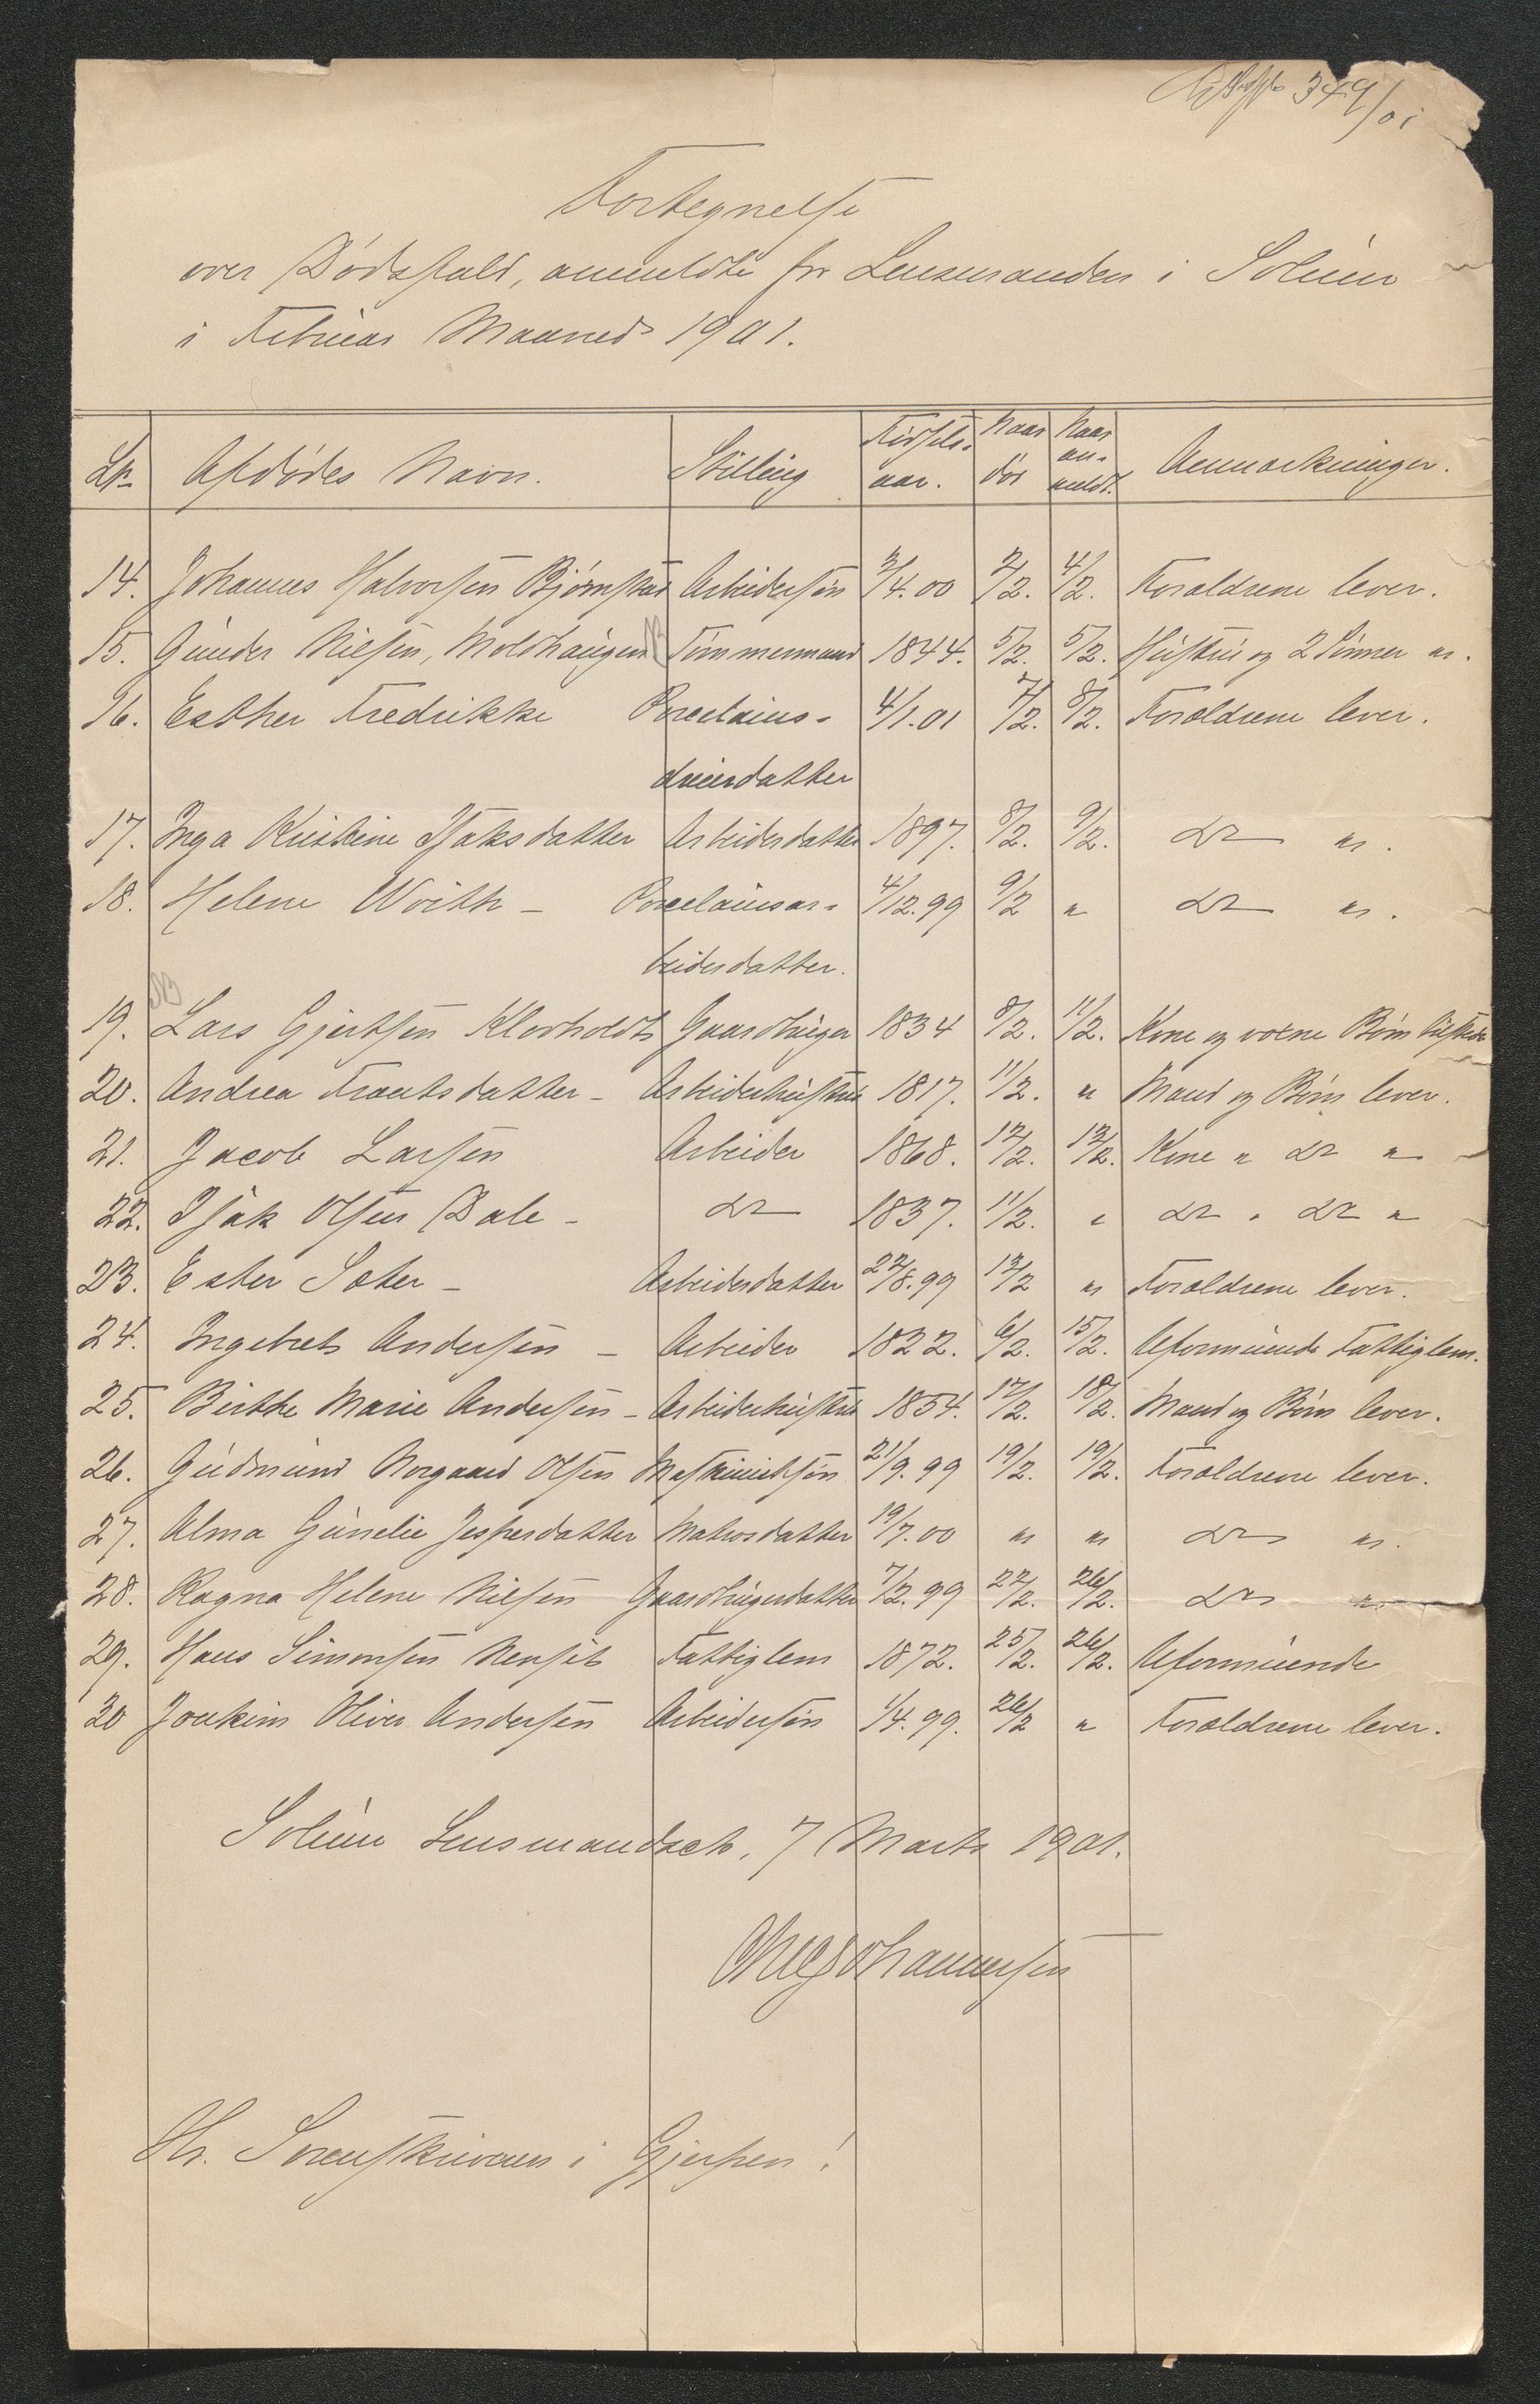 349/01
Fortegnelse
over Dødsfald, anmeldte for Lensmanden i Solum
i Februar Maaned 1901.
Lb. Afdødes Navn. Stilling Fødsels- aar. Naar død Naar an- meldt. Anmærkninger.
14. Johannes Halvorsen Bjørnstad Arbeidersøn 3/4.00 2/2. 4/2. Forældrene lever.
15. Gunder Nielsen, Moldhaugen Tømmermand 1844. 5/2. 5/2. Hustru og 2 Sønner ".
16. Esther Fredrikke Porcelains- 4/1.01 7/2. 8/2. Forældrene lever.
dreierdatter
17. Inga Kristine Isaksdatter Arbeiderdatter 1897. 8/2. 9/2. do ".
18. Helene Woith - Porcelainsar- 4/12.99 9/2 " do ".
beiderdatter.
NB
19. Lars Gjertsen Klovholdt Gaardbruger 1834 8/2. 11/2. Kone og voxne Børn
20. Andrea Frantsdatter - Arbeiderhustru 1817. 11/2. " Mand og Børn lever.
21. Jacob Larsen Arbeider 1868. 12/2. 13/2. Kone " do "
22. Isak Olsen Dale - do 1837. 11/2. " do " do "
23. Ester Sæter - Arbeiderdatter 22/8.99 13/2 " Forældrene lever.
24. Ingebret Andersen - Arbeider 1822. 6/2. 15/2. Uformuende Fattiglem.
25. Birthe Marie Andersen - Arbeiderhustru 1854. 17/2. 18/2. Mand og Børn lever.
26. Gudmund Norgaard Olsen Maskinistsøn 21/9.99 19/2. 19/2. Forældrene lever.
27. Alma Gunelie Jespersdatter Matrosdatter 19/7.00 " " do ".
28. Ragna Helene Nilsen Gaardbrugerdatter 7/2.99 22/2. 26/2. do "
29. Hans Simonsen Nensit Fattiglem 1872. 25/2. 26/2. Uformuende
30 Joakim Oliver Andersen Arbeidersøn 1/4.99. 26/2 " Forældrene lever.
Solum Lensmandsct, 7 Marts 1901.
Johannesen
Hr. Sorenskriveren i Gjerpen!